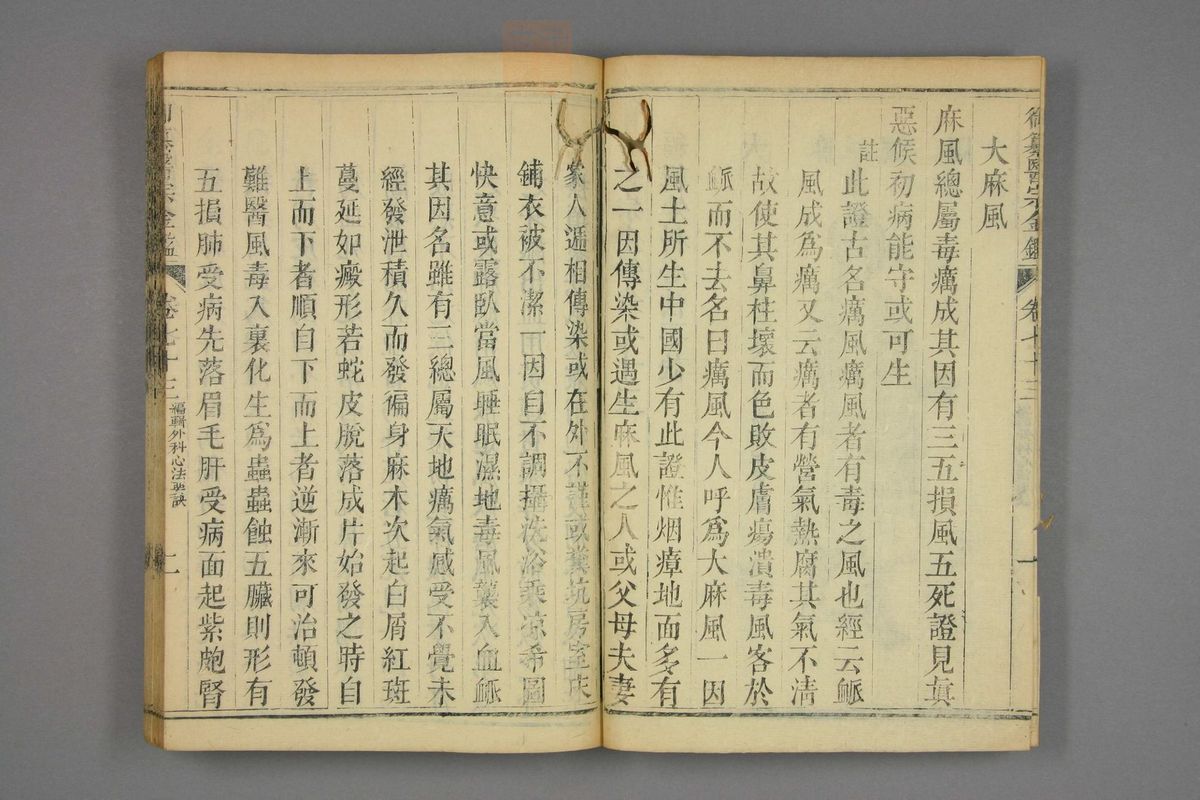 御纂醫宗金鑑 卷七十三
大麻風
麻風總屬毒癘成其因有三五損風五死證見真
惡候初病能守或可生
註
此證古名癘風癘風者有毒之風也經云脈
風成為癘又云癘者有營氣熱腐其氣不清
故使其鼻柱壞而色敗皮膚瘍潰毒風客於
脈而不去名曰癘風今人呼為大麻風一因
風土所生中國少有此證惟烟瘴地面多有
之一因傳染或遇生麻風之人或父母夫妻
家人遞相傳染或在外不謹或糞坑房室床
鋪衣被不潔一因自不調攝洗浴乘涼希圖
快意或露臥當風睡眠濕地毒風襲入血脈
其因名雖有三總屬天地癘氣感受不覺未
經發泄積久而發徧身麻木次起白屑紅斑
蔓延如癜形若蛇皮脫落成片始發之時自
上而下者順自下而上者逆漸來可治頓發
難醫風毒入裏化生為蟲蟲蝕五臟則形有
五損肺受病先落眉毛肝受病面起紫皰腎
卷七十三 編輯外科心法要訣 一